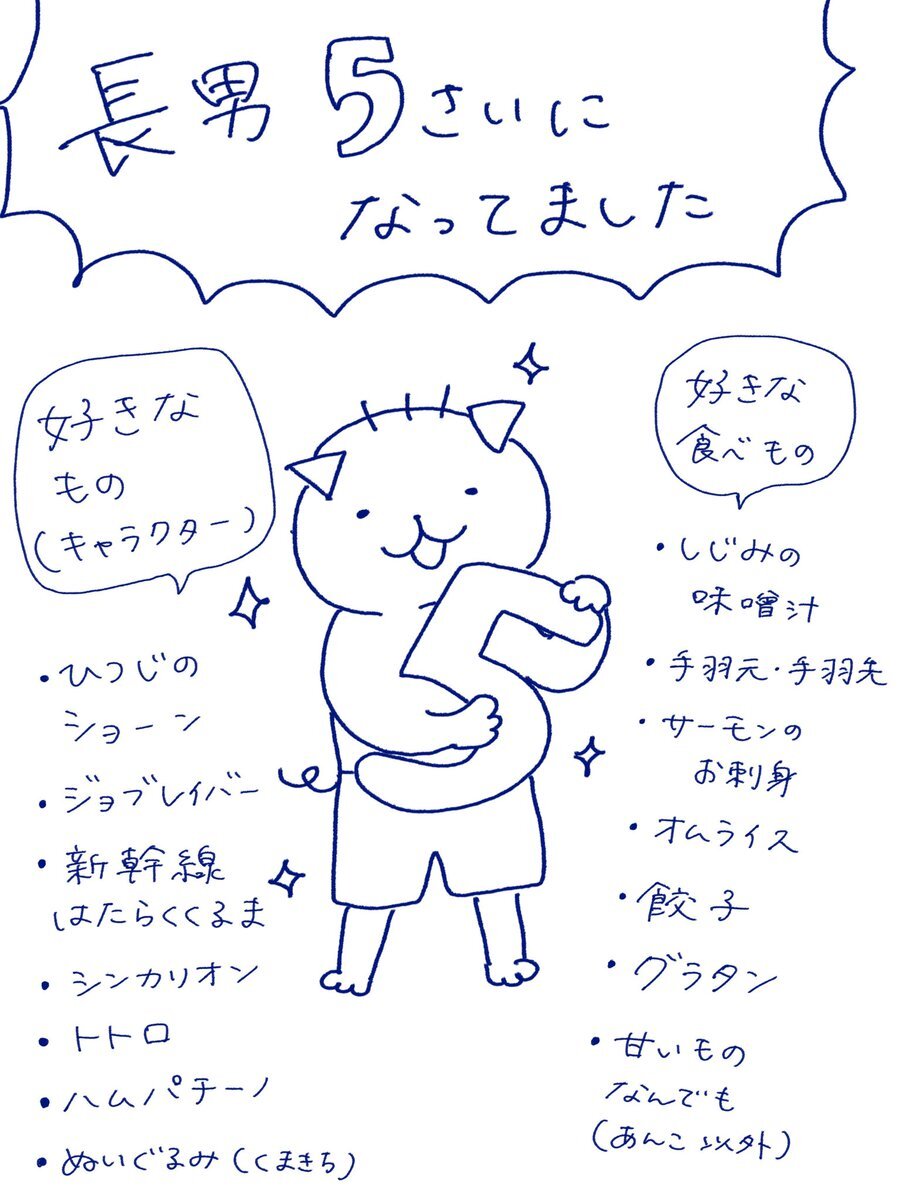 長男5さいに
なってました
好きな
もの
(キャラクター)
・ひつじの
ショーン
・ジョブレイバー
・新幹線
はたらくくるま
・シンカリオン
・トトロ
・ハムパチーノ
・ぬいぐるみ(くまきち)
好きな
食べもの
・しじみの
味噌汁
・手羽元・手羽先
・サーモンの
お刺身
・オムライス
・餃子
・グラタン
・甘いもの
なんでも
(あんこ以外)